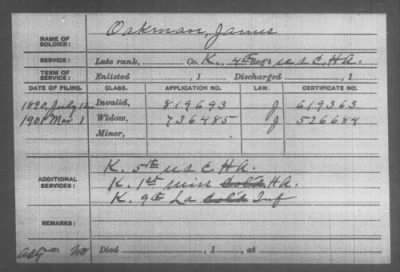 NAME OF SOLDIER: Oakman, James
SERVICE: Late rank, Co. K, 4th Reg't U.S.C.H.A.
TERM OF SERVICE: Enlisted , 1 Discharged , 1
DATE OF FILING. CLASS. APPLICATION NO. LAW. CERTIFICATE NO.
1890, July 12 Invalid, 819693 J 619363
1901 Mar 1 Widow, 736485 J 526684
Minor,
ADDITIONAL SERVICES: K. 5th U.S.C.H.A.
K. 1st Miss Col'd H.A.
K. 9th La Col'd Inf
REMARKS:
Died , 1 , at